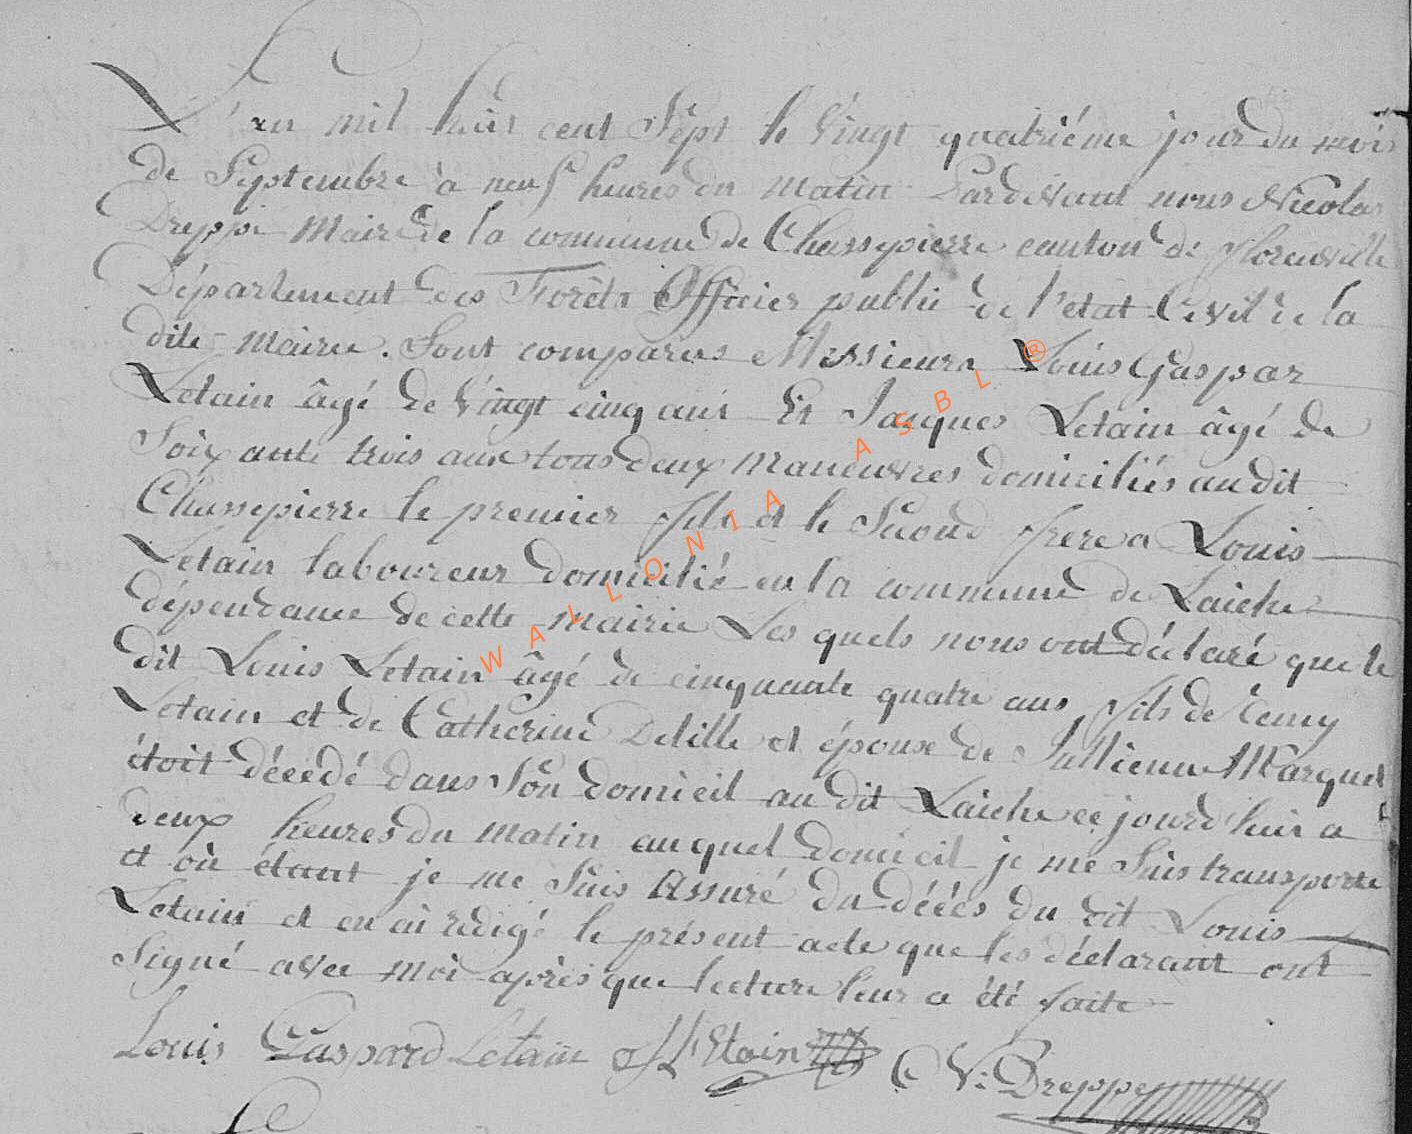 L'an mil huit cent Sept le Vingt quatriéme jour du mois
de Septembre à neuf heures du matin Pardevant nous Nicolas
Dreppe Maire de la commune de Chassepierre canton de florenville
Département des Forêts Officier public de l'état Civil de la
dite mairie. Sont comparus Messieurs Louis Gaspar
Letain âgé de Vingt cinq ans Et Jacques Letain âgé de
Soixante trois ans tous deux Manœuvres domiciliés au dit
Chassepierre le premier fils et le Second frere a Louis
Letain laboureur domicilié en la commune de Laiche
dépendance de cette mairie Les quels nous ont déclaré que le
dit Louis Letain âgé de cinquante quatre ans, fils de remy
Letain et de Catherine Delille et époux de Jullienne Marquet
étoit décédé dans Son domicil au dit Laiche ce jourd'huir a
deux heures du matin auquel domicil je me Suis transporté
et où étant je me Suis Assuré du décés du dit Louis
Letain et en ai redigé le présent acte que les déclarant ont
Signé avec moi après que lecture leur a été faite
Louis Gaspard Letain J L'Etain N: Dreppe
WALLONIA ASBL ®